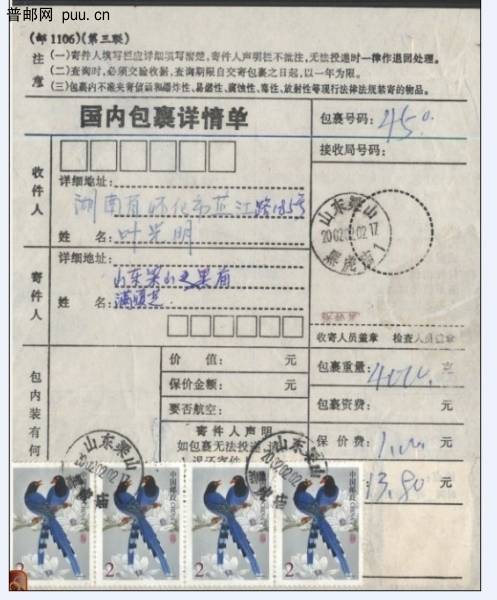 普邮网 puu.cn
(邮1106)(第三联)
注意
(一)寄件人填写栏应详细填写清楚，寄件人声明栏不批注，无法投递时一律作退回处理。
(二)查询时，必须交验收据，查询期限自交寄包裹之日起，以一年为限。
(三)包裹内不准夹寄信函和爆炸性、易燃性、腐蚀性、毒性、放射性等现行法律法规禁寄的物品。
国内包裹详情单
包裹号码：450
接收局号码：
收件人
详细地址：
湖南省怀化市芷江路185号
姓名：叶光明
寄件人
详细地址：
山东梁山
姓名：
山东梁山
2002.02.02.17
黑虎庙
1
收寄人员盖章 检查人员盖章
包内装有何
价值： 元
保价金额： 元
要否航空：
寄件人声明
如包裹无法投递，请
包裹重量： 克
包裹资费： 元
保价费：1.00 元
13.80 元
山东梁山
2002.02.02.17
山东梁山
2002.02.02.17
中国邮政 CHINA
2
中国邮政 CHINA
2
中国邮政 CHINA
2
中国邮政 CHINA
2